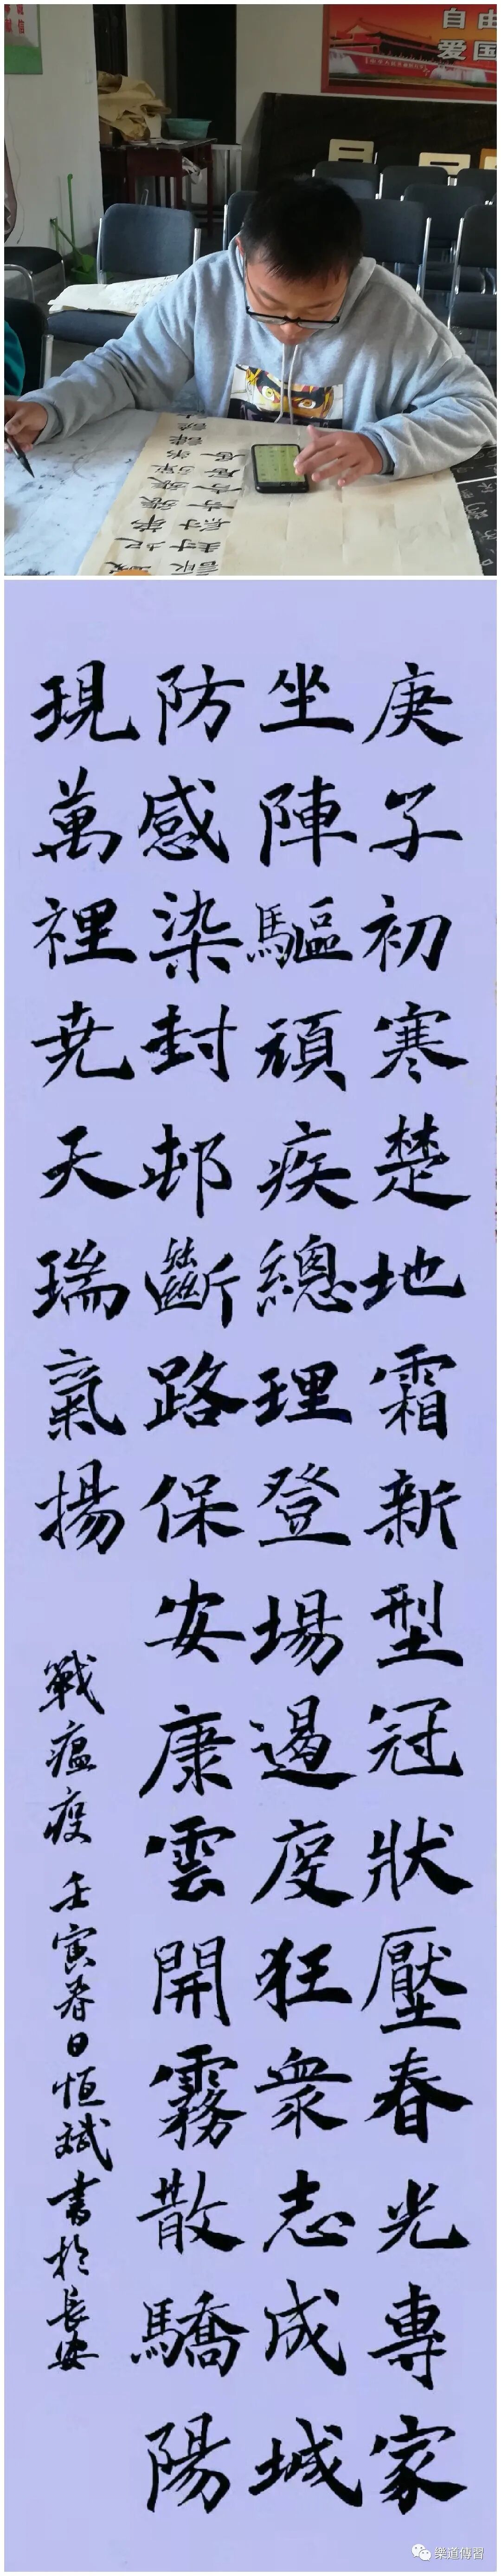 自由
爱国
庚子初寒楚地霜新型冠狀壓春光專家
坐陣驅頑疾總理登場遏疫狂衆志成城
防感染封邨斷路保安康雲開霧散驕陽
現萬裡尭天瑞氣揚
戰瘟疫 壬寅春日恒斌書於長安
樂道傳習